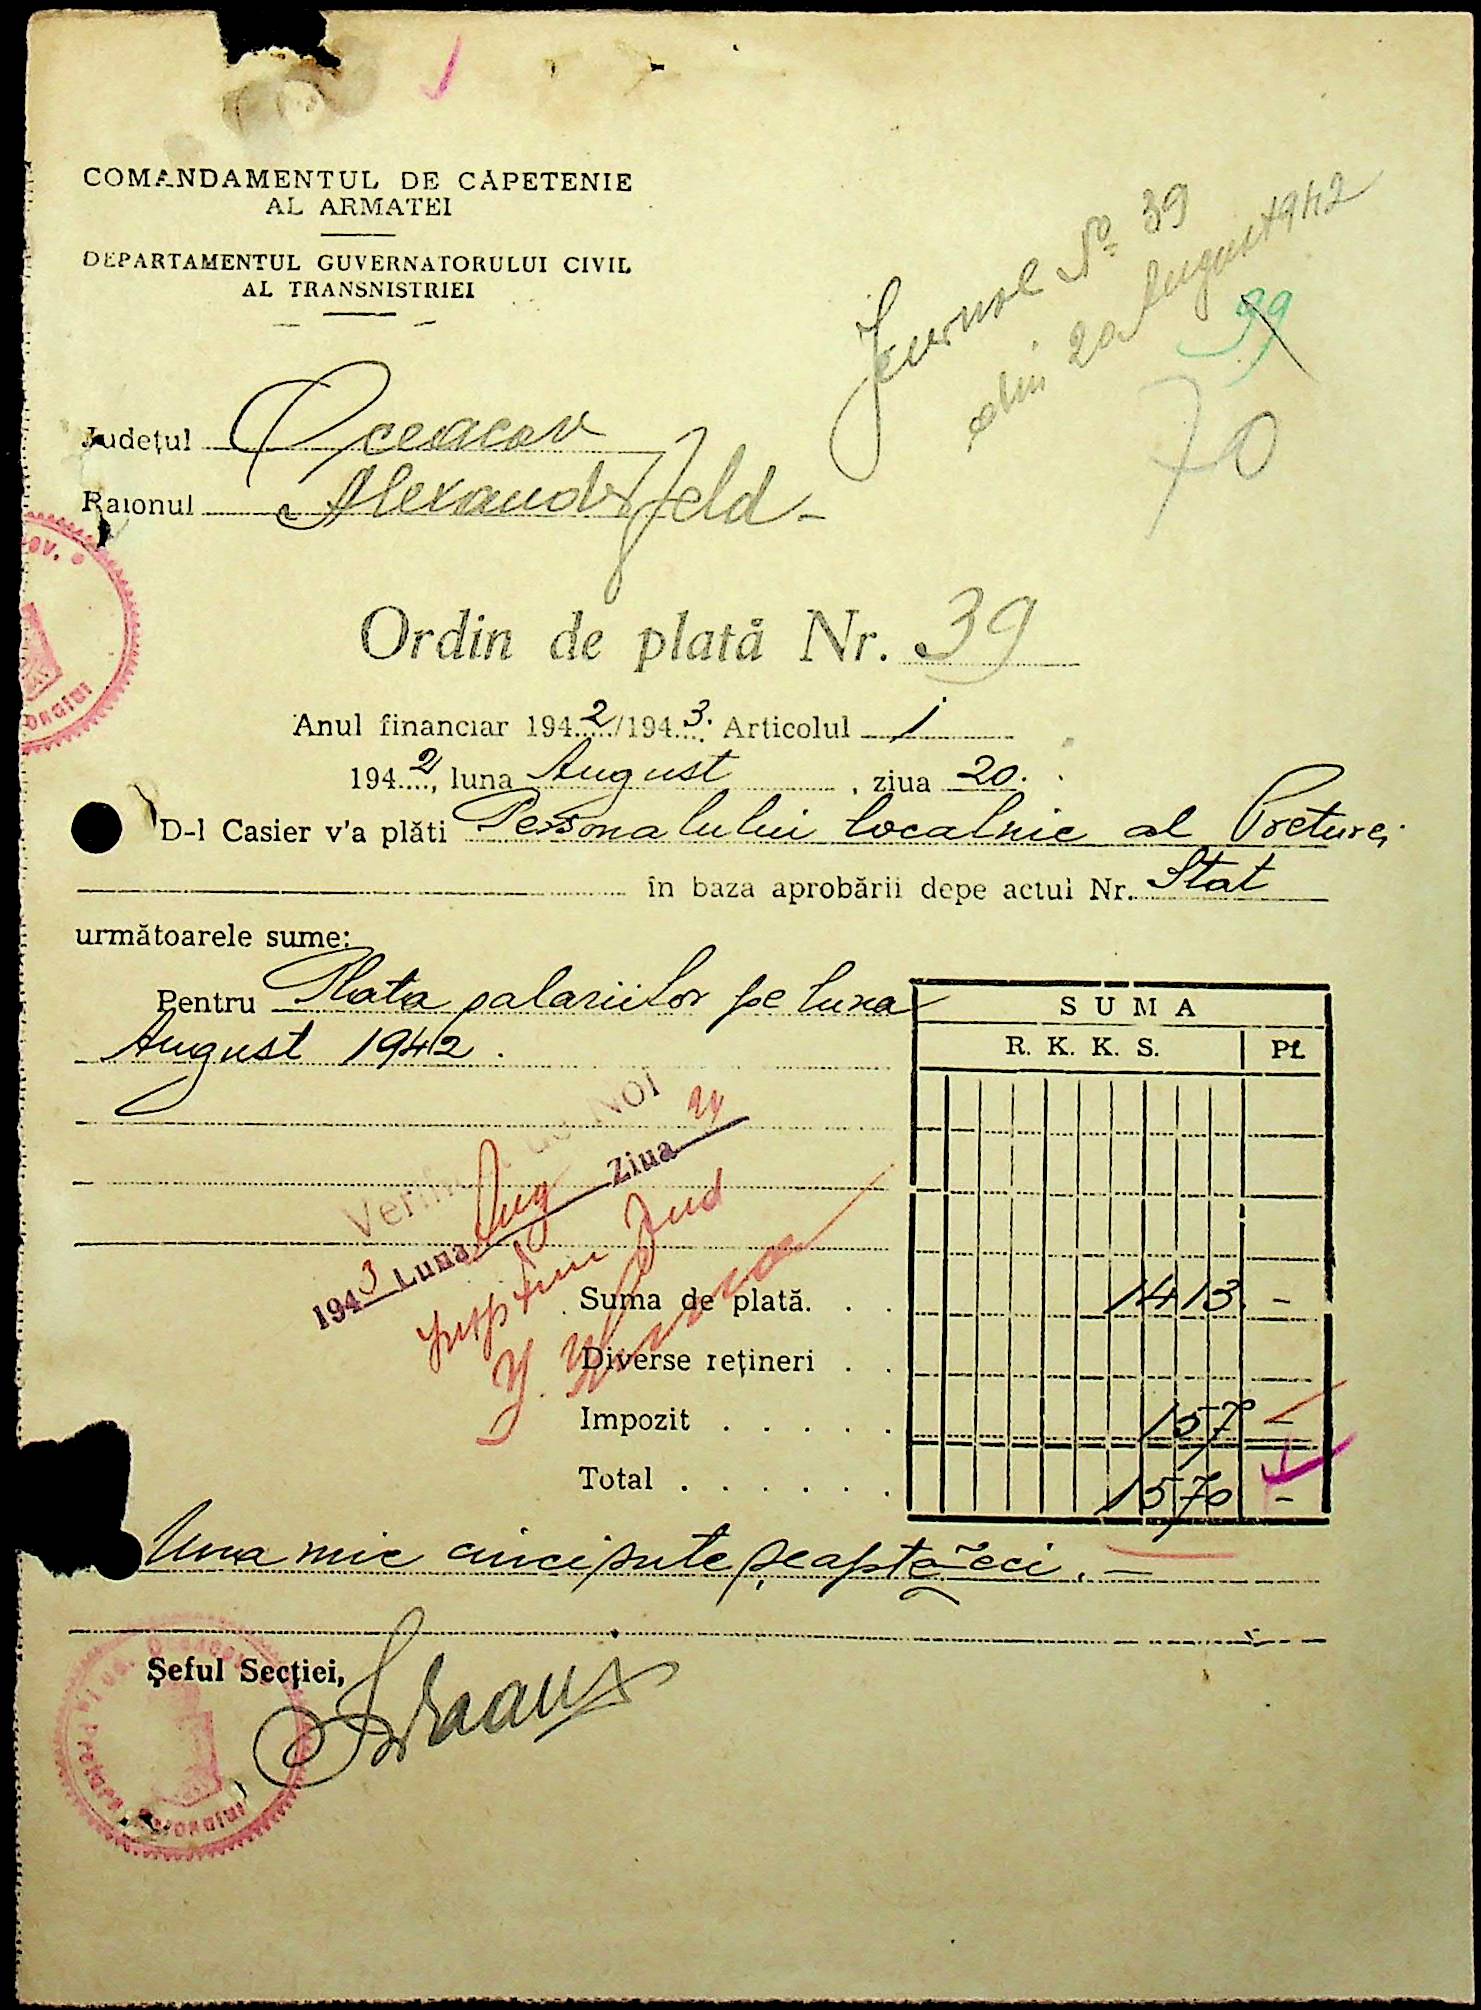 COMANDAMENTUL DE CAPETENIE
AL ARMATEI
DEPARTAMENTUL GUVERNATORULUI CIVIL
AL TRANSNISTRIEI
Jurnal No 39
din 20 August 1942
39
70
Județul Oceacov
Raionul Alexanderfeld -
Ordin de plată Nr. 39
Anul financiar 1942/1943. Articolul 1
1942, luna August, ziua 20.
D-l Casier v'a plăti Personalului localnic al Preturei
în baza aprobării depe actul Nr. Stat
următoarele sume:
Pentru Plata salariilor pe luna
August 1942.
SUMA
R. K. K. S. Pf.
Verificat de Noi
1943 Luna Aug Ziua
Suma de plată. . . 1413. -
Diverse rețineri . .
Impozit . . . . . 157 -
Total . . . . . . 1570 -
Una mie cinci sute șeaptezeci. -
Șeful Secției,
Pretura Raionului